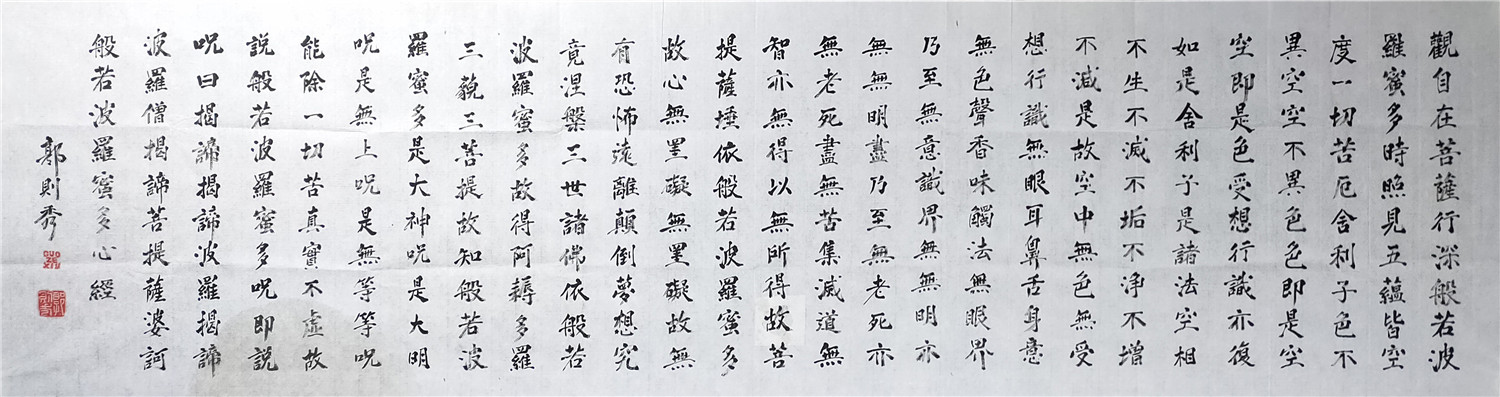 觀自在菩薩行深般若波
羅蜜多時照見五蘊皆空
度一切苦厄舍利子色不
異空空不異色色即是空
空即是色受想行識亦復
如是舍利子是諸法空相
不生不滅不垢不淨不增
不減是故空中無色無受
想行識無眼耳鼻舌身意
無色聲香味觸法無眼界
乃至無意識界無無明亦
無無明盡乃至無老死亦
無老死盡無苦集滅道無
智亦無得以無所得故菩
提薩埵依般若波羅蜜多
故心無罣礙無罣礙故無
有恐怖遠離顛倒夢想究
竟涅槃三世諸佛依般若
波羅蜜多故得阿耨多羅
三藐三菩提故知般若波
羅蜜多是大神呪是大明
呪是無上呪是無等等呪
能除一切苦真實不虛故
説般若波羅蜜多呪即説
呪曰揭諦揭諦波羅揭諦
波羅僧揭諦菩提薩婆訶
般若波羅蜜多心經
郭則秀